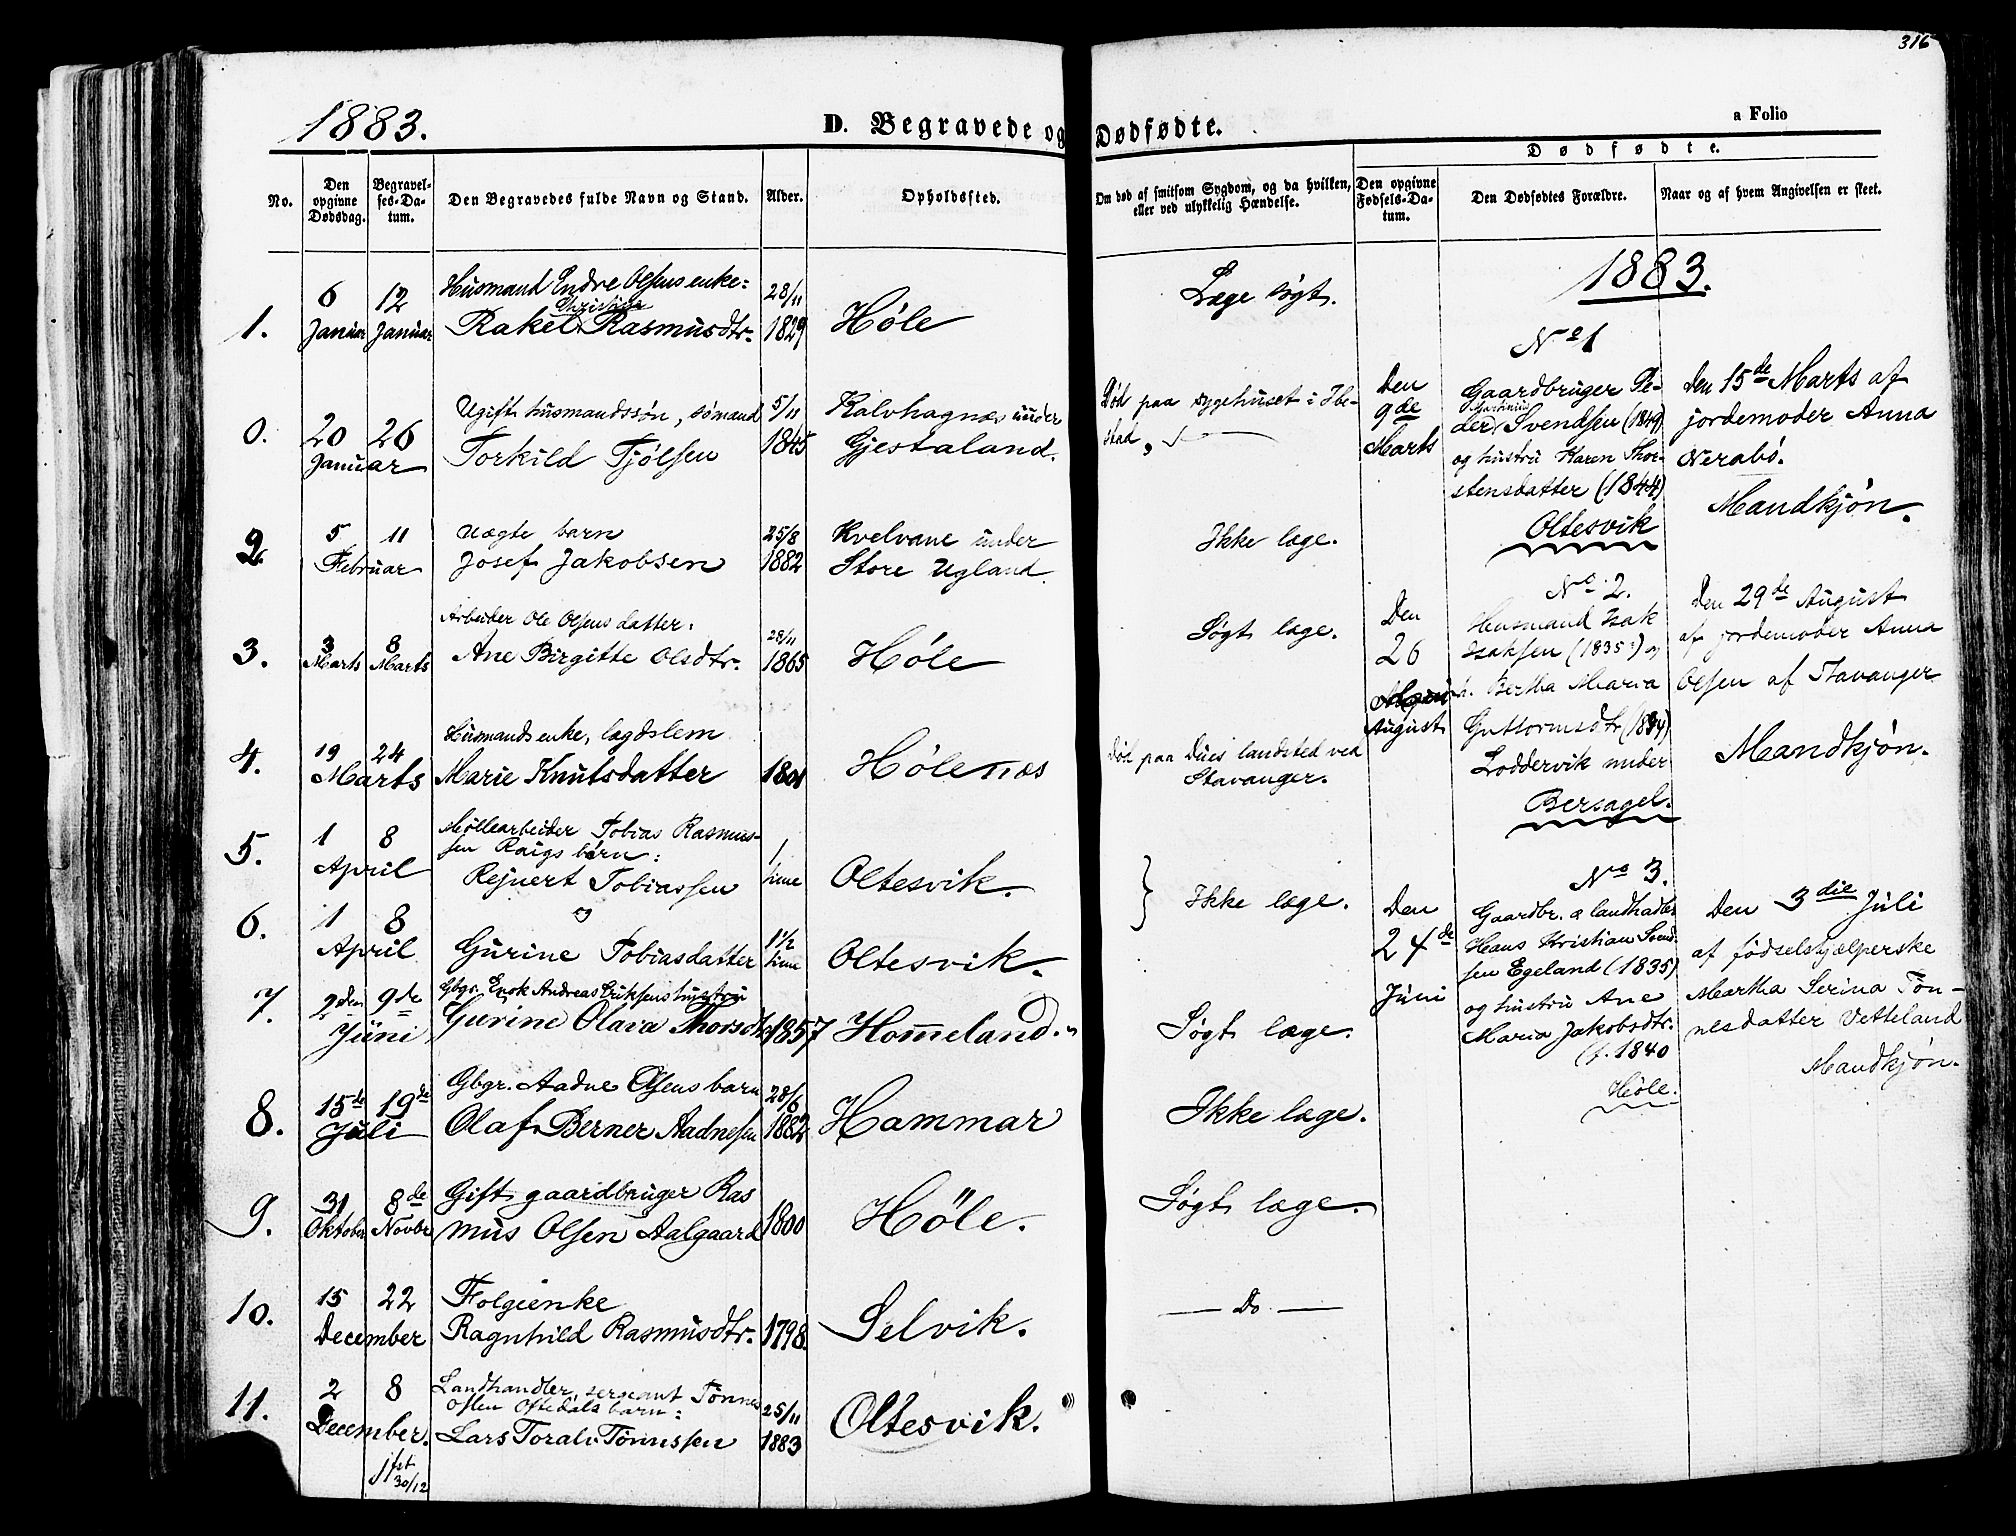 316
1883.
D. Begravede og Dødfødte.
a Folio
No.
Den opgivne Dødsdag.
Begravelses-Datum.
Den Begravedes fulde Navn og Stand.
Alder.
Opholdssted.
Om død af smitsom Sygdom, og da hvilken, eller ved ulykkelig Hændelse.
Dødfødte.
Den opgivne Fødsels-Datum.
Den Dødfødtes Forældre.
Naar og af hvem Angivelsen er skeet.
1. 6 Januar 12 Januar
Husmand Endre Olsens enke:
Rakel Rasmusdtr.
28/11 1829
Høle
Læge søgt.
0. 20 26 Januar
Ugift husmandssøn, sømand
Torkild Tjølsen
5/11 1845
Kalvhagnæs under
Gjestaland.
Død paa sygehuset i Ibe-
stad,
2. 5 11 Februar
Uægte barn
Josef Jakobsen
25/8 1882
Kvelvane under
Store Ugland.
Ikke læge.
3. 3 Marts 8 Marts
Arbeider Ole Olsens datter:
Ane Birgitte Olsdtr.
28/11 1865
Høle
Søgt læge.
4. 19 24 Marts
Husmandsenke, lægdslem
Marie Knutsdatter
1801
Hølenæs
Død paa Dues landsted ved
Stavanger.
5. 1 8 April
Møllearbeider Tobias Rasmus-
sen Raigs børn:
Rejnert Tobiassen
1 time
Oltesvik.
Ikke læge.
og
6. 1 8 April
Gurine Tobiasdatter
1 1/2 time
Oltesvik.
7. 2den 9de Juni
Gbgr. Enok Andreas Eriksens hustru
Gurine Olava Thorsdtr
1857
Homeland.
Søgt læge.
8. 15de 19de Juli
Gbgr. Aadne Olsens barn
Olaf Berner Aadnesen
28/6 1882
Hammar
Ikke læge.
9. 31 Oktober 8de Novbr
Gift gaardbruger Ras
mus Olsen Aalgaard
1800
Høle.
Søgt læge.
10. 15 22 December
Folgienke
Ragnhild Rasmusdtr.
1798.
Selvik.
— Do —
11. 2 8 December.
Landhandler, sergeant Tønnes
Olsen Oftedals barn:
Lars Toralv Tønnessen
25/11 1883
Oltesvik.
jfst 30/12
1883.
No 1
Den 9de Marts
Gaardbruger Pe-
der Svendsen (1849)
og hustru Karen Thor-
stensdatter (1844)
Oltesvik
Den 15de Marts af
jordemoder Anna
Nerabø.
Mandkjøn.
No 2.
Den 26 August
Husmand Isak
Isaksen (1835) og
h. Bertha Maria
Guttormsdtr (1834)
Loddervik under
Bersagel.
Den 29de August
af jordemoder Anna
Olsen af Stavanger
Mandkjøn.
No 3.
Den 24de Juni
Gaardbr. & landhadler
Hans Kristian Svend-
sen Egeland (1835)
og hustru Ane
Maria Jakobsdtr.
(f. 1840
Høle.
Den 3die Juli
af fødselshjælperske
Martha Serina Tøn-
nesdatter Vetteland
Mandkjøn.